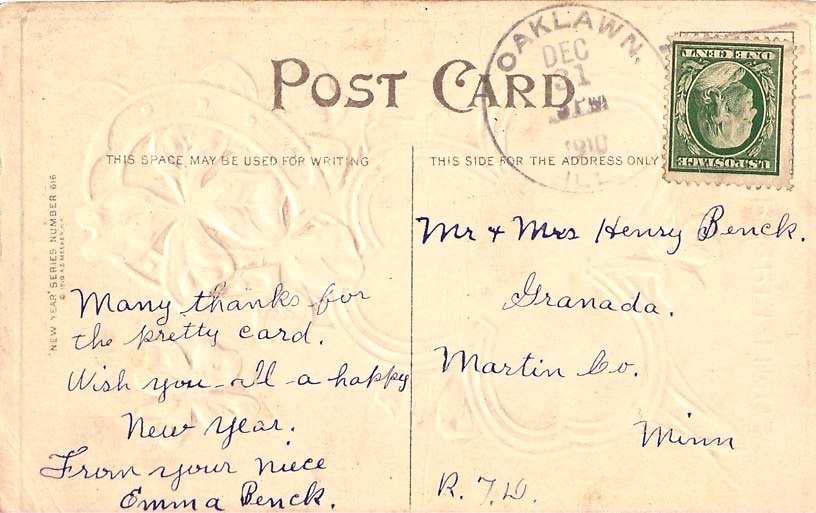 POST CARD
THIS SPACE MAY BE USED FOR WRITING
THIS SIDE FOR THE ADDRESS ONLY
OAKLAWN,
DEC
31
PM
1910
ILL
ONE CENT
U.S. POSTAGE
"NEW YEAR" SERIES NUMBER 616
© 1910 A.S. MEEKER, N.Y.
Many thanks for
the pretty card.
Wish you all a happy
New Year.
From your niece
Emma Benck.
Mr & Mrs Henry Benck.
Granada.
Martin Co.
Minn
R. F. D.